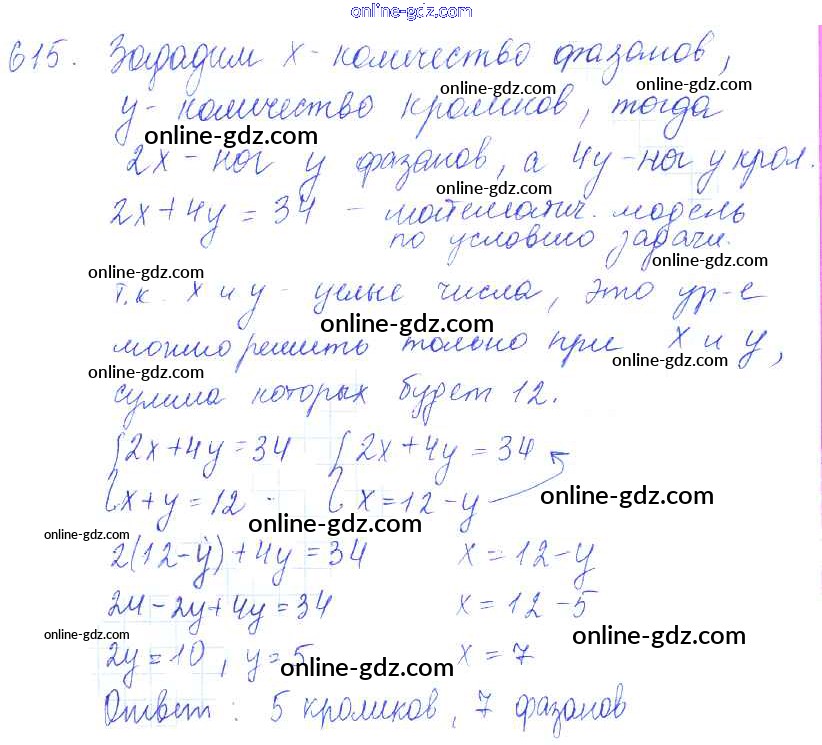 online-gdz.com
615. Зададим х - количество фазанов,
online-gdz.com
у - количество кроликов, тогда
online-gdz.com
online-gdz.com
2х - ног у фазанов, а 4у - ног у крол.
online-gdz.com
2х+4у = 34 - математич. модель
по условию задачи.
online-gdz.com
online-gdz.com
т.к. х и у - целые числа, это ур-е
online-gdz.com
можно решить только при х и у,
online-gdz.com
online-gdz.com
сумма которых будет 12.
{2х+4у=34 {2х+4у=34
х+у=12. х=12-у
online-gdz.com
online-gdz.com
online-gdz.com
2(12-у)+4у=34 х=12-у
24-2у+4у=34 х=12-5
online-gdz.com
online-gdz.com
2у=10, у=5 х=7
online-gdz.com
Ответ: 5 кроликов, 7 фазанов